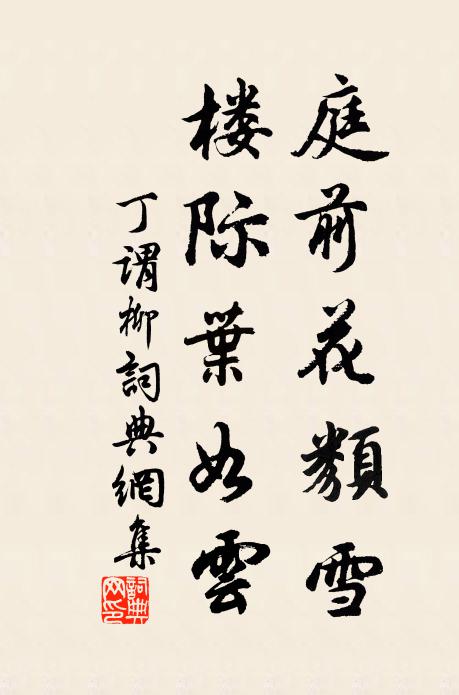 庭前花類雪
楼际葉如雲
丁谓柳詞典網集
詞典网印